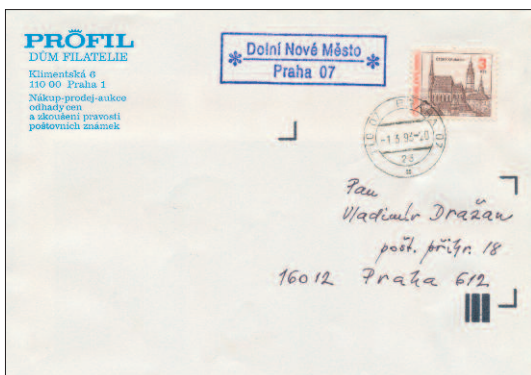 PROFIL
DŮM FILATELIE
Klimentská 6
110 00 Praha 1
Nákup-prodej-aukce
odhady cen
a zkoušení pravosti
poštovních známek
Dolní Nové Město
Praha 07
3
Pan
Vladimír Dražan
pošt. přihr. 18
16012 Praha 612